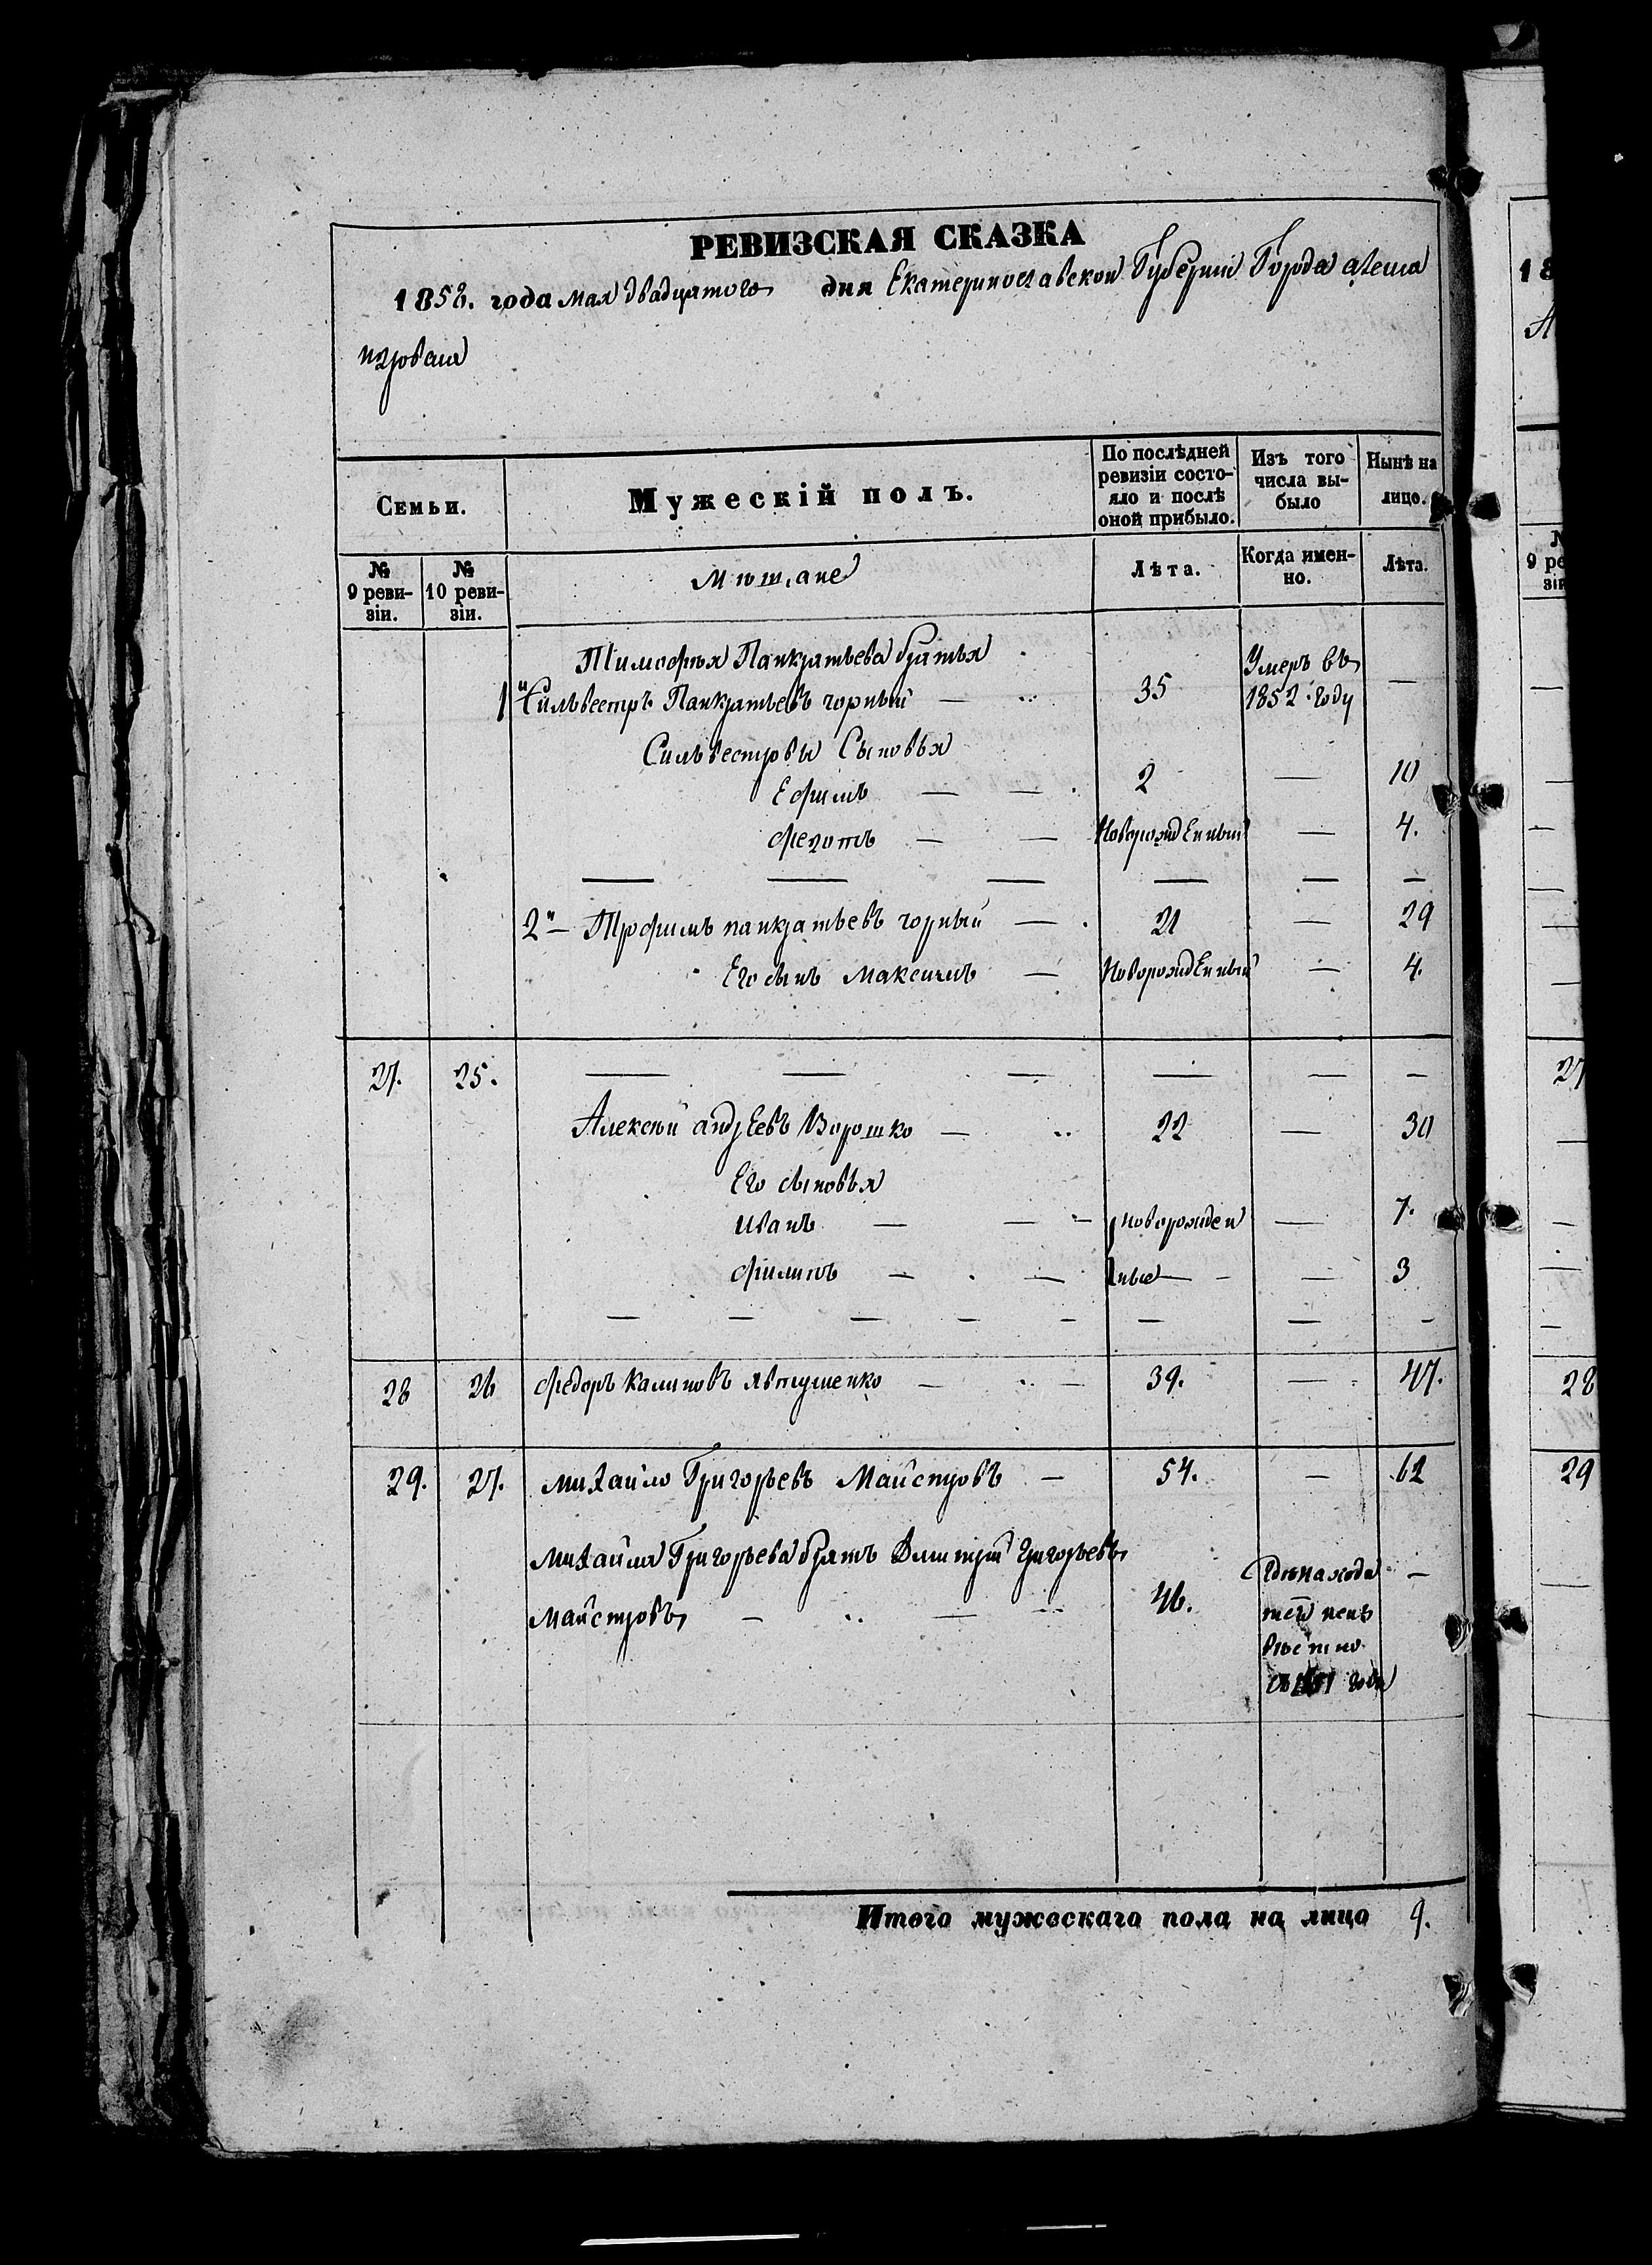 РЕВИЗСКАЯ СКАЗКА
1858. года мая двадцятого дня Екатеринославской Губернiи Города алекса
ндровска
Семьи.
Мужескiй полъ.
По послѣдней ревизiи состояло и послѣ оной прибыло.
Изъ того числа выбыло
Нынѣ на лицо.
№ 9 ревизiи.
№ 10 ревизiи.
Мѣщане
Лѣта.
Когда именно.
Лѣта.
Тимофѣя Панкратьева братья
1й Сильвестръ Панкратьевъ чорный — 35 Умеръ въ 1852 году —
Сильвестровы Сыновья
Ефимъ — — 2 — 10
Федотъ — — Новорожденный — 4.
2й — Трофимъ панкратьевъ чорный — 21 — 29
Его сынъ максимъ — Новорожденный — 4.
27. 25. — — — — — —
Алексѣй андреевъ Ворошко — 22 — 30
Его сыновья
иванъ — — — новорожден — 7.
филипъ — — ные — — 3
28 26 федоръ калиновъ явтушенко — — 39. — 47.
29. 27. михайло Григорьевъ Майстровъ — 54. — 62
михайла Григорьева братъ Дмитрiй григорьевъ
майстровъ — — 46. Гдѣ находится неизвѣстно съ года —
Итого мужескаго пола на лицо 9.
18
А
№
9 ре
зiи
27
28
29